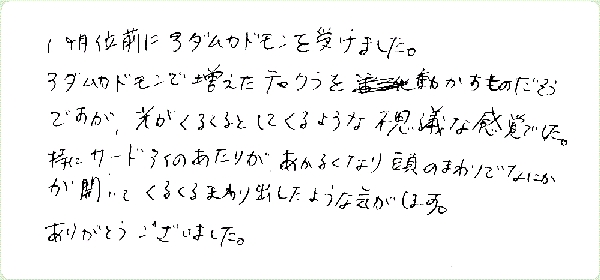 1ヶ月位前にアダムカドモンを受けました。
アダムカドモンで増えたテロメアを動かすものだそう
ですが、光がくるくるとしてくるような不思議な感覚でした。
特にサードアイのあたりがあかるくなり頭のまわりでなにか
が開いてくるくるまわり出したような気がします。
ありがとうございました。